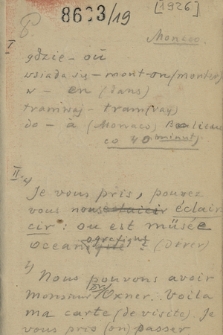 8603/19
[1926]
Monaco
I
gdzie - où
wsiada się - mont-on (monter)
w - en (dans)
tramwaj - tram(vay)
do - à (Monaco)
co 40 minut
II 1)
Je vous pris, pouvez
vous éclair
cir: ou est musée
ocean (Dover)
2)
Nous pouvons avoir
Monsieur Oxner. Voila
ma carte (de visite). Je
vous pris (on) passer